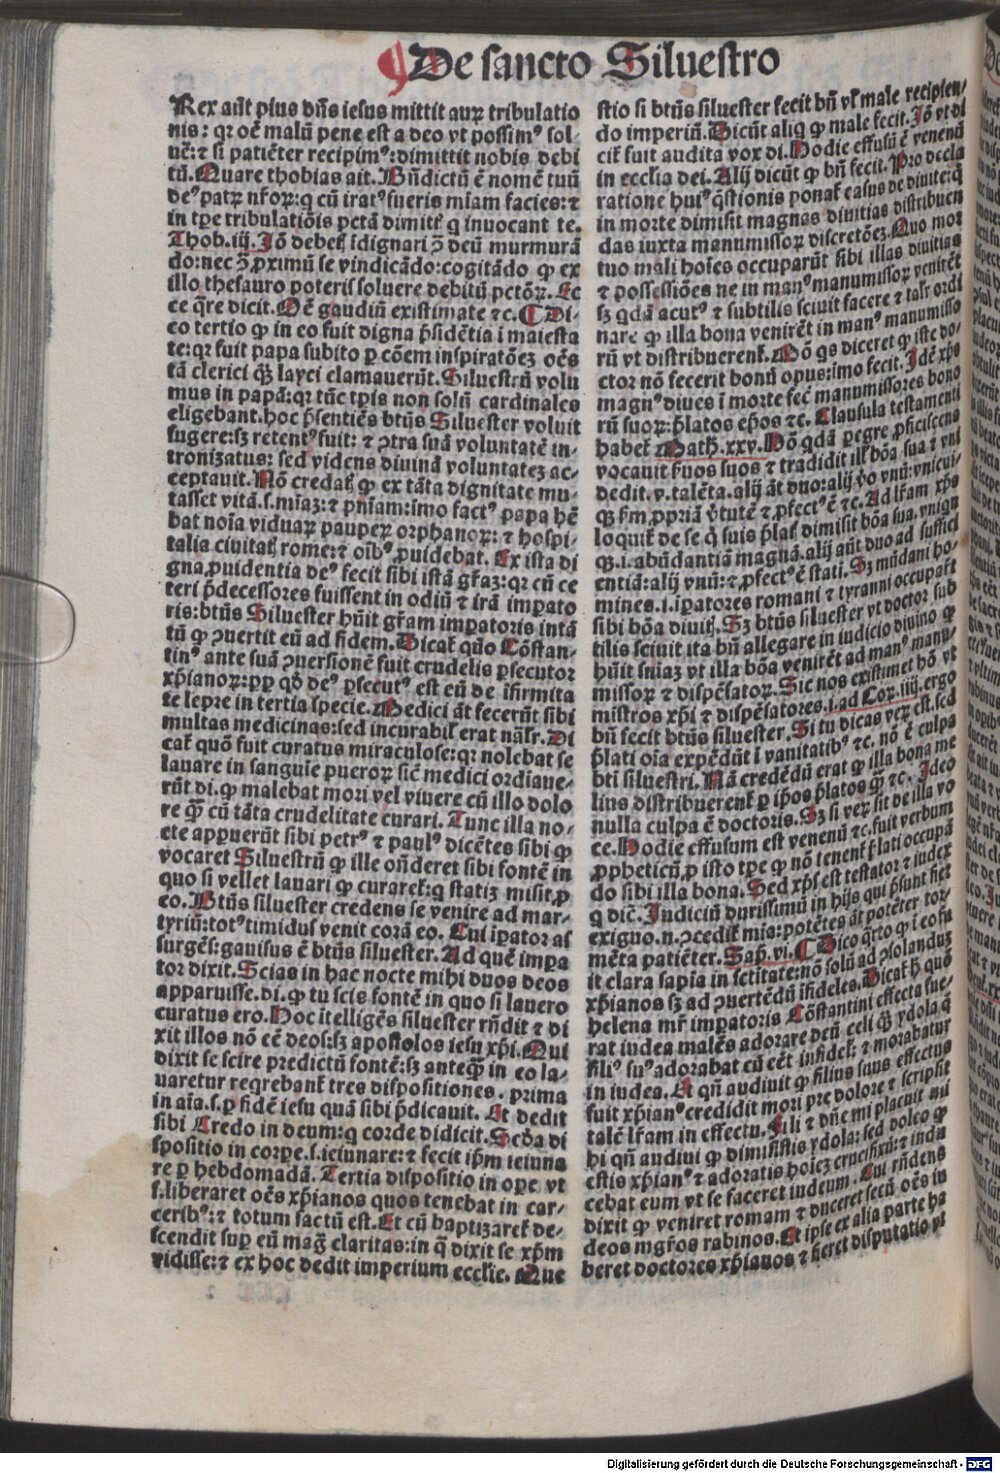 ¶ De sancto Siluestro
Rex aūt pius dn̄s iesus mittit aurꝝ tribulatio
nis: qꝛ oē malū pene est a deo vt possimꝰ sol⸗
uē: ⁊ si patiēter recipimꝰ: dimittit nobis debi
tū. Quare thobias ait. Bn̄dictū ē nomē tuū
deꝰ patrꝝ nr̄oꝝ: q cū iratꝰ fueris miam facies: ⁊
in tp̄e tribulatiōis pctā dimittꝭ q inuocant te.
Thob. iij. Jō debet̄ īdignari ↄ̄ deū murmurā
do: nec ↄ̄ ꝓximū se vindicādo: cogitādo ꝙ ex
illo thesauro poteris soluere debitū pctōꝝ. Ec
ce q̄re dicit. Oē gaudiū existimate ⁊c. ¶ Di⸗
co tertio ꝙ in eo fuit digna p̄sidētia ī maiesta
te: qꝛ fuit papa subito ꝑ cōem inspiratōeꝫ oēs
tā clerici qꝫ̄ layci clamauerūt. Siluestrū volu
mus in papā: qꝛ tūc tꝑis non solū cardinales
eligebant. hoc p̄sentiēs btūs Siluester voluit
fugere: sꝫ retentꝰ fuit: ⁊ ↄtra suā voluntatē in⸗
tronizatus: sed videns diuinā voluntateꝫ ac⸗
ceptauit. Nō credatꝭ ꝙ ex tāta dignitate mu⸗
tasset vitā. s. mīaꝫ: ⁊ pn̄iam: imo factꝰ papa hē
bat noīa viduaꝝ pauperꝝ orphanoꝝ: ⁊ hospi⸗
talia ciuitatꝭ rome: ⁊ oībꝰ ꝓuidebat. Ex ista di
gna ꝓuidentia deꝰ fecit sibi istā gr̄aꝫ: qꝛ cū ce
teri p̄decessores fuissent in odiū ⁊ irā imꝑato
ris: btūs Siluester hūit gr̄am imꝑatoris intā
tū ꝙ ↄuertit eū ad fidem. Dicat̄ quō Cōstan⸗
tinꝰ ante suā ↄuersionē fuit crudelis ꝑsecutor
xp̄ianoꝝ: ꝓꝑ qd̄ deꝰ ꝑsecutꝰ est eū de īfirmita
te lepre in tertia specie. Medici āt fecerūt sibi
multas medicinas: sed incurabilꝭ erat nāl̄r. Di
cat̄ quō fuit curatus miraculose: qꝛ nolebat se
lauare in sanguīe pueroꝝ sic̄ medici ordiaue⸗
rūt di. ꝙ malebat mori vel viuere cū illo dolo
re qꝫ̄ cū tāta crudelitate curari. Tunc illa no⸗
cte apꝑuerūt sibi petrꝰ ⁊ paulꝰ dicētes sibi ꝙ
vocaret Siluestrū ꝙ ille on̄deret sibi fontē in
quo si vellet lauari ꝙ curaret̄: q statiꝫ misit ꝓ
eo. Btūs siluester credens se venire ad mar⸗
tyriū: totꝰ timidus venit corā eo. Cui īꝑator as
surgēs: gauisus ē btūs siluester. Ad quē imꝑa
tor dixit. Scias in hac nocte mihi duos deos
apparuisse. di. ꝙ tu scis fontē in quo si lauero
curatus ero. Hoc ītelligēs siluester rn̄dit ⁊ di
xit illos nō eē deos: sꝫ apostolos iesu xp̄i. Qui
dixit se scire predictū fontē: sꝫ anteqꝫ̄ in eo la⸗
uaretur reqrebant̄ tres dispositiones. prima
in aīa. s. ꝑ fidē iesu quā sibi p̄dicauit. Et dedit
sibi Credo in deum: q corde didicit. Scd̄a di
spositio in corꝑe. s. ieiunare: ⁊ fecit ip̄m ieiuna
re ꝑ hebdomadā. Tertia dispositio in oꝑe vt
s. liberaret oēs xp̄ianos quos tenebat in car⸗
ceribꝰ: ⁊ totum factū est. Et cū baptizaret̄ de⸗
scendit suꝑ eū mag̅ claritas: in q̄ dixit se xp̄m
vidisse: ⁊ ex hoc dedit imperium eccl̄ie. Que
stio si btūs siluester fecit bn̄ vl̄ male recipien⸗
do imperiū. Dicūt aliq ꝙ male fecit. Jō vt di
cit̄ fuit audita vox di. Hodie effusū ē venenū
in eccl̄ia dei. Alij dicūt ꝙ bn̄ fecit. Pro decla
ratione huiꝰ q̄stionis ponat̄ casus de diuite: q
in morte dimisit magnas diuitias distribuen
das iuxta manumissoꝝ discretōeꝫ. Quo mor
tuo mali hoīes occuparūt sibi illas diuitias
⁊ possessiōes ne in manꝰ manumissoꝝ venirēt
sꝫ qdā acutꝰ ⁊ subtilis sciuit facere ⁊ tal̄r ordi
nare ꝙ illa bona venirēt in manꝰ manumisso
rū vt distribuerent̄. Mō qs diceret ꝙ iste do⸗
ctor nō fecerit bonū opus: imo fecit. Jdē xp̄s
magnꝰ diues ī morte fec̄ manumissores bono
rū suoꝝ: p̄latos ep̄os ⁊c. Clausula testamenti
habet̄ Math. xxv. Hō qdā ꝑegre ꝓficiscens
vocauit ẜuos suos ⁊ tradidit ill̄ bōa sua ⁊ vni
dedit. v. talēta. alij āt duo: alij v̄o vnū: vnicui⸗
qꝫ ẜm ꝓpriā v̄tutē ⁊ ꝓfectꝰ ē ⁊c. Ad lr̄am xp̄s
loquit̄ de se q suis p̄latꝭ dimisit bōa sua. vnicui
qꝫ. i. abūdantiā magnā. alij aūt duo ad suffici
entiā: alij vnū: ⁊ ꝓfectꝰ ē stati. Sꝫ mūdani ho⸗
mines. i. īꝑatores romani ⁊ tyranni occupar̄t
sibi bōa diuītꝭ. Sꝫ btūs siluester vt doctor sub
tilis sciuit ita bn̄ allegare in iudicio diuino ꝙ
hūit sniaꝫ vt illa bōa venirēt ad manꝰ manu⸗
missoꝝ ⁊ dispēsatoꝝ. Sic nos existimet hō vt
mistros xp̄i ⁊ dispēsatores. i. ad Cor. iiij. ergo
bn̄ fecit btūs siluester. Si tu dicas verꝝ est. sed
p̄lati oīa expēdūt ī vanitatibꝰ ⁊c. nō ē culpa
bti siluestri. Nā credēdū erat ꝙ illa bona me
lius distribuerent̄ ꝑ ip̄os p̄latos qꝫ̄ ⁊c. Jdeo
nulla culpa ē doctoris. Sꝫ si verꝝ sit de illa vo
ce. Hodie effusum est venenū ⁊c. fuit verbum
ꝓpheticū ꝓ isto tp̄e ꝙ nō tenent̄ p̄lati occupā
do sibi illa bona. Sed xp̄s est testator ⁊ iudex
q dic̄. Judiciū durissimū in hijs qui p̄sunt fiet
exiguo. n. ↄcedit̄ mia: potētes āt potēter tor⸗
mēta patiēter. Sap̄. vi. ¶ Dico q̄rto ꝙ ī eo fu
it clara sapia in sctitate: nō solū ad ↄsolanduꝫ
xp̄ianos sꝫ ad ↄuertēdū īfideles. Dicat̄ h̄ quō
helena mr̄ imꝑatoris Cōstantini effecta fue⸗
rat iudea malēs adorare deū celi qꝫ̄ ydola q̄
filiꝰ suꝰ adorabat cū eēt infidel̄: ⁊ morabatur
in iudea. Et qn̄ audiuit ꝙ filius suus effectus
fuit xp̄ianꝰ credidit mori pre dolore ⁊ scripsit
talē lr̄am in effectu. Fili ⁊ dn̄e mi placuit mi
hi qn̄ audiui ꝙ dimisistis ydola: sed doleo ꝙ
estis xp̄ianꝰ ⁊ adoratis hoīeꝫ crucifixū: ⁊ indu
cebat eum vt se faceret iudeum. Cui rn̄dens
dixit ꝙ veniret romam ⁊ duceret secū oēs iu
deos mgr̄os rabinos. Et ipse ex alia parte ha
beret doctores xp̄ianos ⁊ fieret disputatio vt
Digitalisierung gefördert durch die Deutsche Forschungsgemeinschaft - DFG